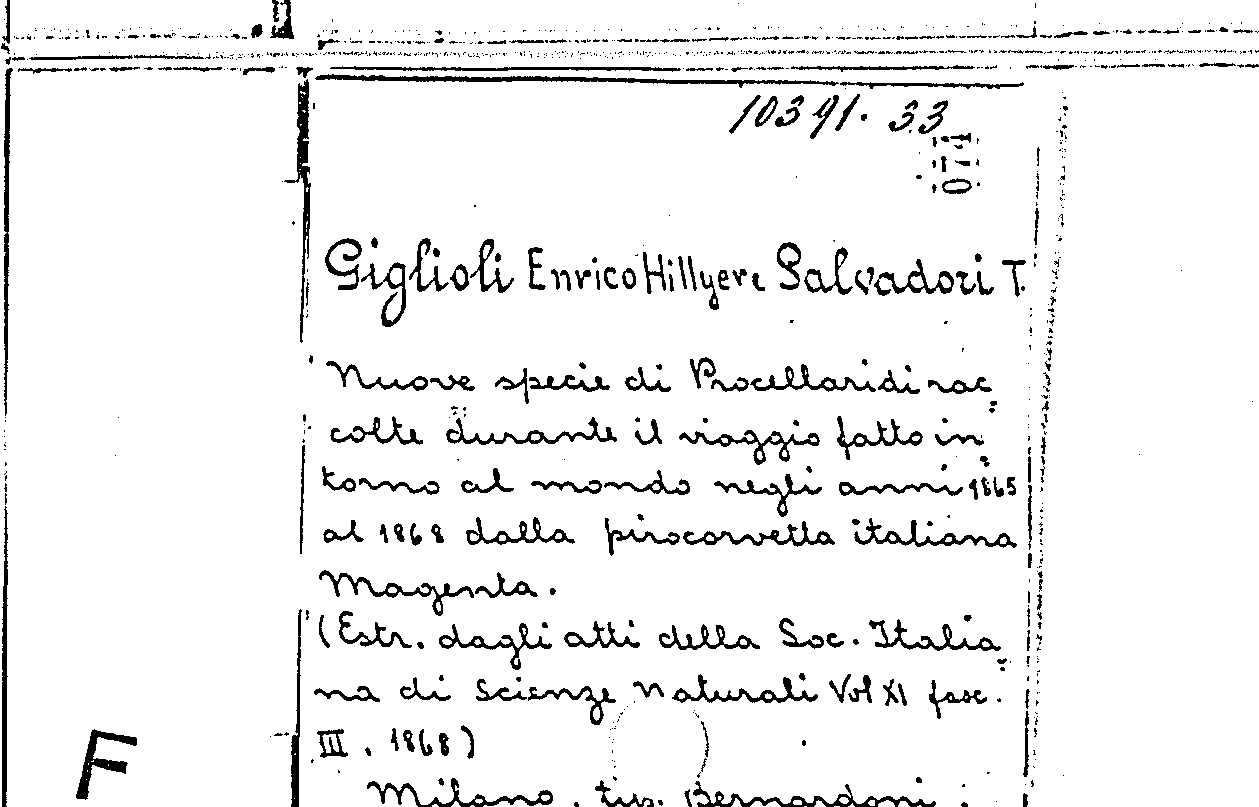 10391.33
074
Giglioli Enrico Hillyer e Salvadori T.
Nuove specie di Procellaridi rac=
colte durante il viaggio fatto in=
torno al mondo negli anni 1865
al 1868 dalla pirocorvetta italiana
Magenta.
(Estr. dagli atti della Soc. Italia=
na di Scienze Naturali Vol XI fasc.
III. 1868)
Milano. tip. Bernardoni.
F